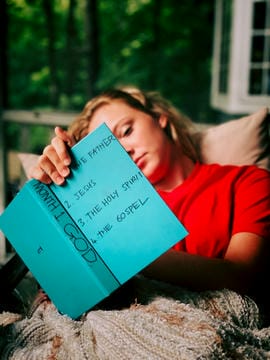 THE FATHER
2. JESUS
3. THE HOLY SPIRIT
4. THE GOSPEL
MONTH 1 GOD